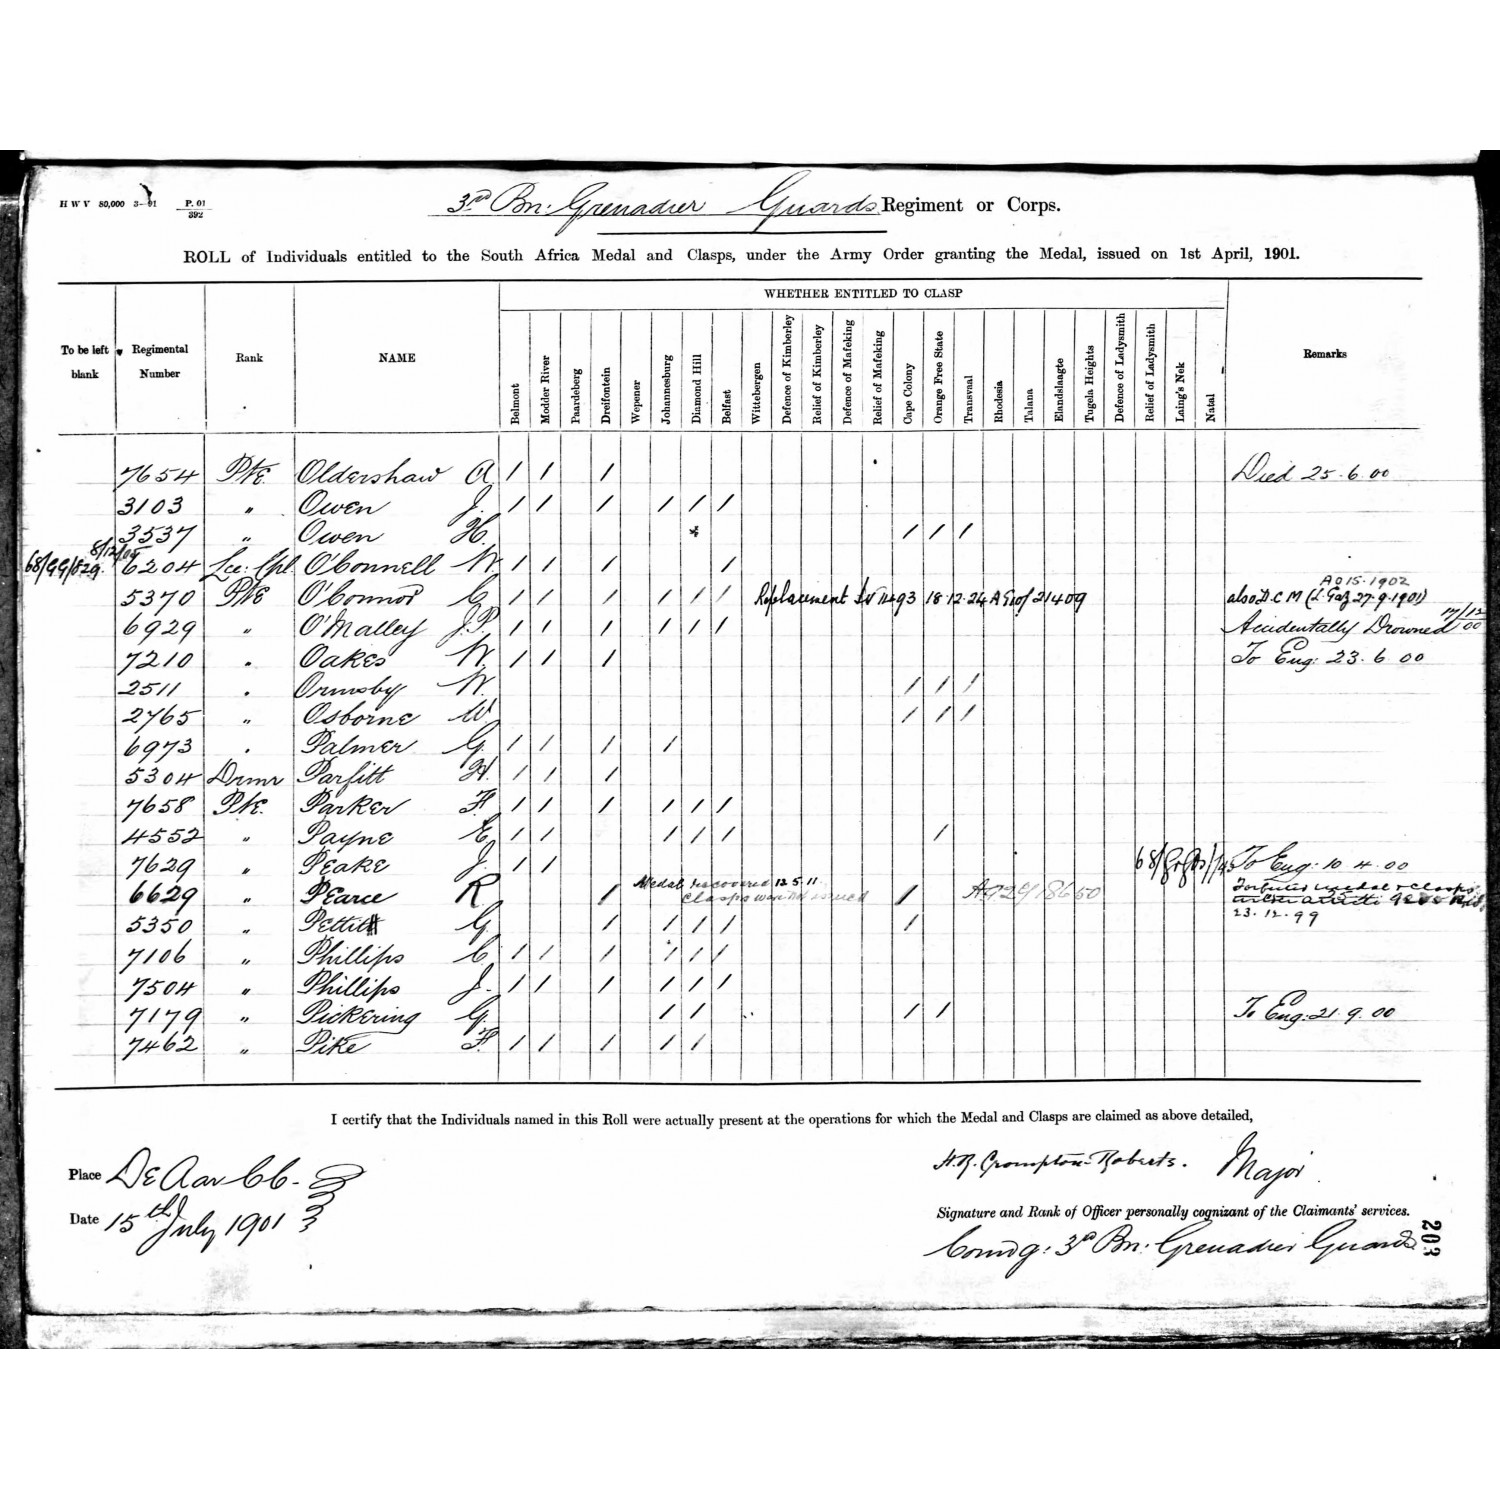 H W V 80,000 3–01 P. 01/392
3rd Bn: Grenadier Guards Regiment or Corps.
ROLL of Individuals entitled to the South Africa Medal and Clasps, under the Army Order granting the Medal, issued on 1st April, 1901.
WHETHER ENTITLED TO CLASP
To be left blank Regimental Number Rank NAME Belmont Modder River Paardeberg Dreifontein Wepener Johannesburg Diamond Hill Belfast Wittebergen Defence of Kimberley Relief of Kimberley Defence of Mafeking Relief of Mafeking Cape Colony Orange Free State Transvaal Rhodesia Talana Elandslaagte Tugela Heights Defence of Ladysmith Relief of Ladysmith Laing's Nek Natal Remarks
7654 Pte Oldershaw A / / / Died 25.6.00
3103 " Owen J. / / / / / /
3537 " Owen H. / / /
8/12/05
68/GG/829. 6204 Lce: Cpl O'Connell W. / / / /
A O 15.1902
5370 Pte O'Connor C / / / / / / Replacement 18.12.24 21409 also D.C.M (L. Gaz 27.9.1901)
6929 " O'Malley J.P. / / / / / / Accidentally Drowned 17/12/00
7210 " Oakes W. / / / To Eng: 23.6.00
2511 " Ormsby W. / / /
2765 " Osborne W / / /
6973 " Palmer G. / / / /
5304 Drmr Parfitt H. / / /
7658 Pte. Parker F. / / / / / /
4552 " Payne E. / / / / / /
7629 " Peake J. / / To Eng: 10.4.00
Medal recovered 12.5.11.
6629 " Pearce R / Clasps were not issued / Forfeited medal & Clasps
23.12.99
5350 " Pettitt G. / / / / /
7106 " Phillips C. / / / / / /
7504 " Phillips J. / / / / / /
7179 " Pickering G. / / / / To Eng: 21.9.00
7462 " Pike F. / / / / /
I certify that the Individuals named in this Roll were actually present at the operations for which the Medal and Clasps are claimed as above detailed,
Place De Aar CC.
H.R. Crompton-Roberts. Major
Date 15th July 1901
Signature and Rank of Officer personally cognizant of the Claimants' services.
Comdg: 3rd Bn: Grenadier Guards
203